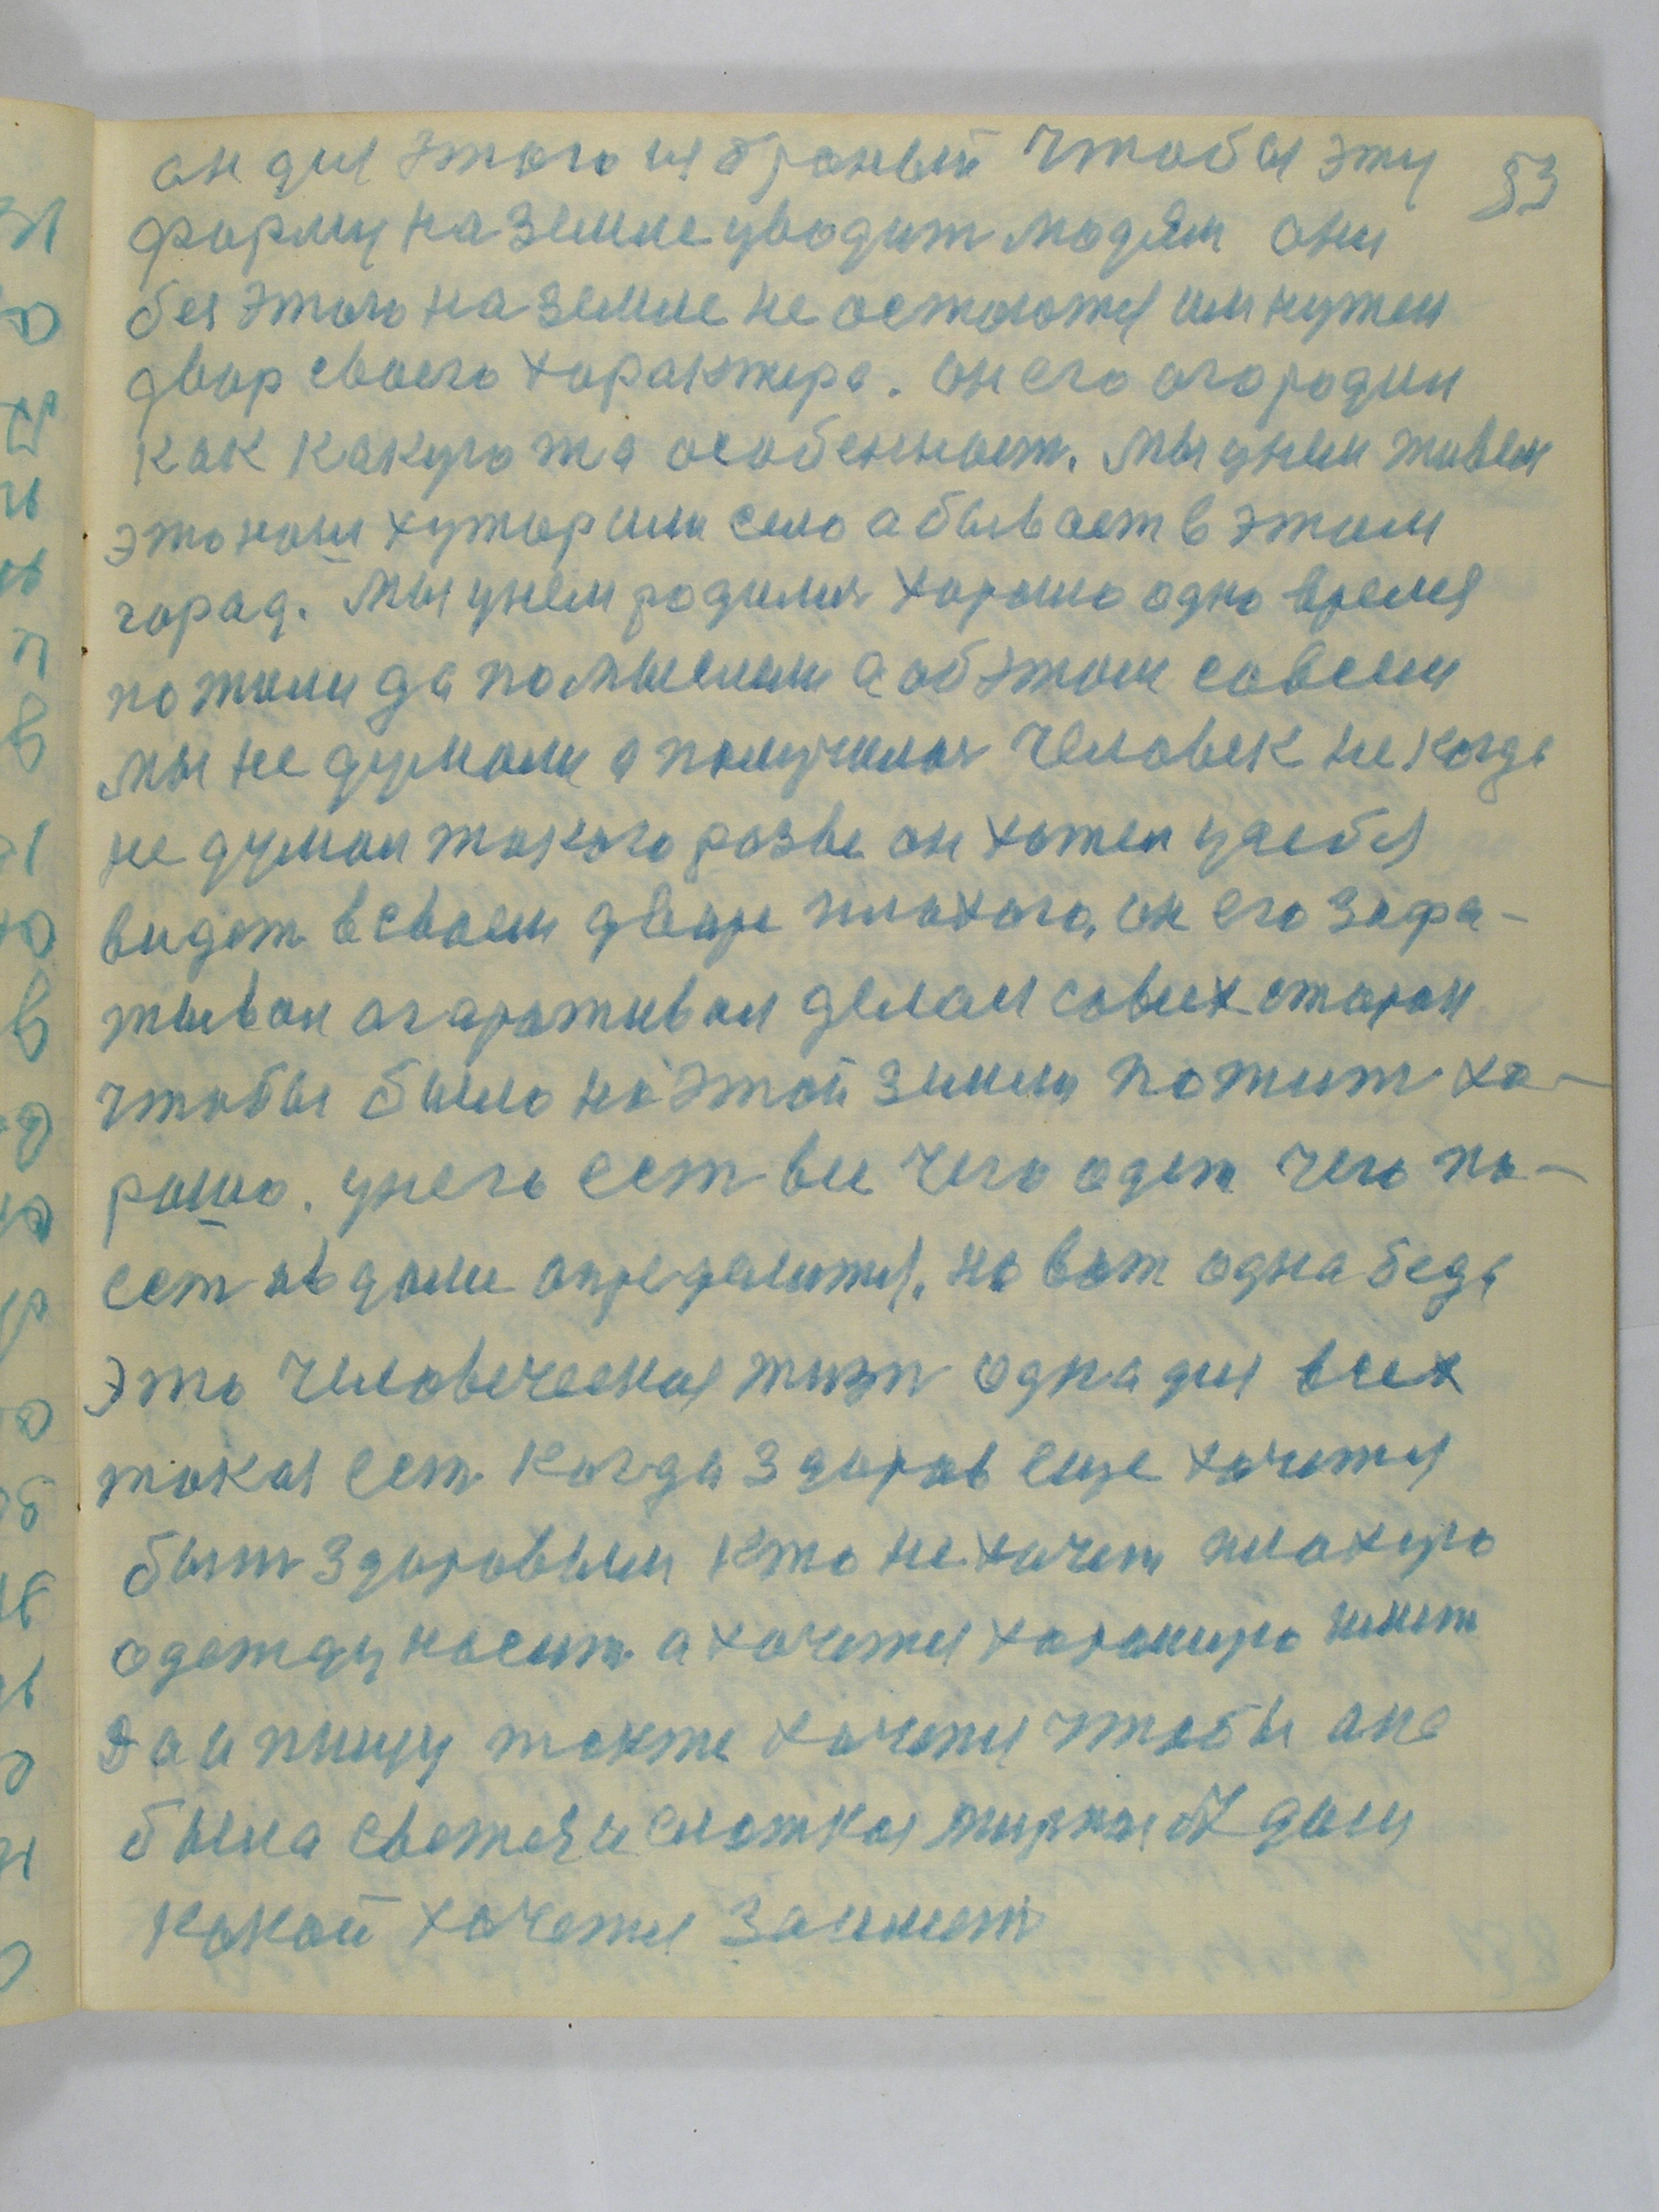 53
он для этого избраный чтобы эту
форму на земле уводит людям они
без этого на земле не остаются им нужен
двор своего характера. он его огородил
как какуюто особенност. мы у нем живем
это наш хутор или село а бывает в этом
горад. мы у нем родилис хорошо одно время
пожили да помыслили а об этом совсем
мы не думали а получилос человек не когда
не думал такого разве он хотел у себя
видет в своем дворе плохого, он его зара-
тывал агараживал делал совсех сторон
чтобы было на этой земли пожит хо-
рошо. у него ест все чего одет чего по-
ест и в доме определится, но вот одна беда
это человеческая жизн одна для всех
такая ест когда здоров еще хочится
быт здоровым кто не хочет плохую
одежду носит а хочется хорошую имет
Да и пищу также хочется чтобы она
была свежая и слаткая жирная И дом
какой хочется заимет